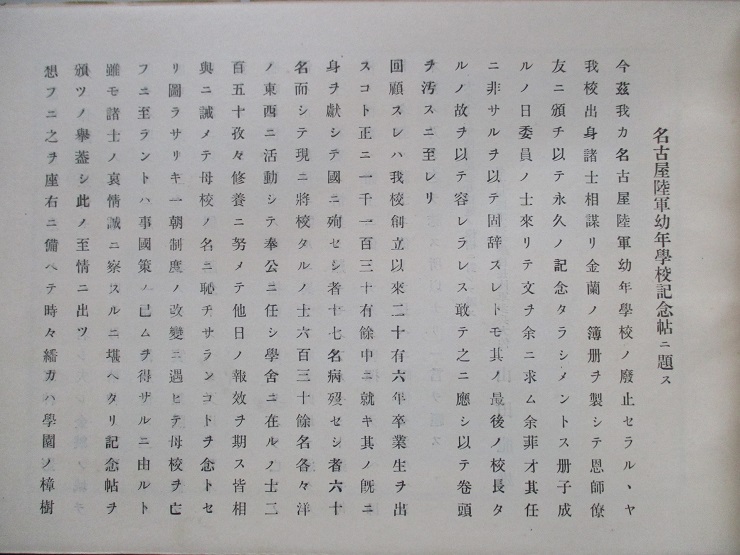 名古屋陸軍幼年學校記念帖ニ題ス
今茲我カ名古屋陸軍幼年學校ノ廢止セラルヽヤ
我校出身諸士相謀リ金蘭ノ簿册ヲ製シテ恩師僚
友ニ頒チ以テ永久ノ記念タラシメントス册子成
ルノ日委員ノ士來リテ文ヲ余ニ求ム余菲才其任
ニ非サルヲ以テ固辞スレトモ其ノ最後ノ校長タ
ルノ故ヲ以テ容レラレス敢テ之ニ應シ以テ卷頭
ヲ汚スニ至レリ
回顧スレハ我校創立以來二十有六年卒業生ヲ出
スコト正ニ一千一百三十有餘中ニ就キ其ノ既ニ
身ヲ獻シテ國ニ殉セシ者十七名病歿セシ者六十
名而シテ現ニ將校タルノ士六百三十餘名各々洋
ノ東西ニ活動シテ奉公ニ任シ學舍ニ在ルノ士二
百五十孜々修養ニ努メテ他日ノ報效ヲ期ス皆相
與ニ誡メテ母校ノ名ニ恥チサランコトヲ念トセ
リ圖ラサリキ一朝制度ノ改變ニ遇ヒテ母校ヲ亡
フニ至ラントハ事國策ノ已ムヲ得サルニ由ルト
雖モ諸士ノ哀情誠ニ察スルニ堪ヘタリ記念帖ヲ
頒ツノ擧蓋シ此ノ至情ニ出ツ
想フニ之ヲ座右ニ備ヘテ時々繙カハ學園ノ樟樹